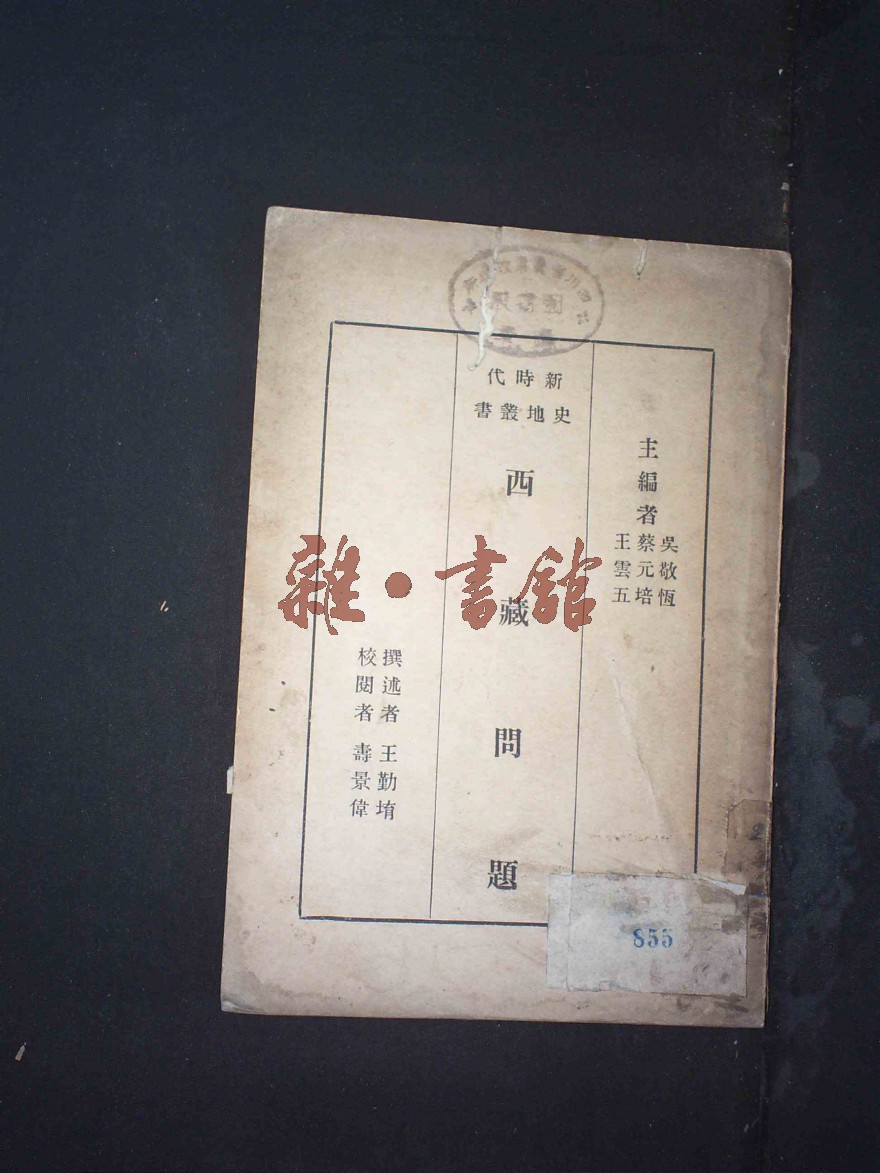 主編者
吳敬恆
蔡元培
王雲五
新時代
史地叢書
西藏問題
撰述者 王勤堉
校閱者 壽景偉
雜·書館
855
2